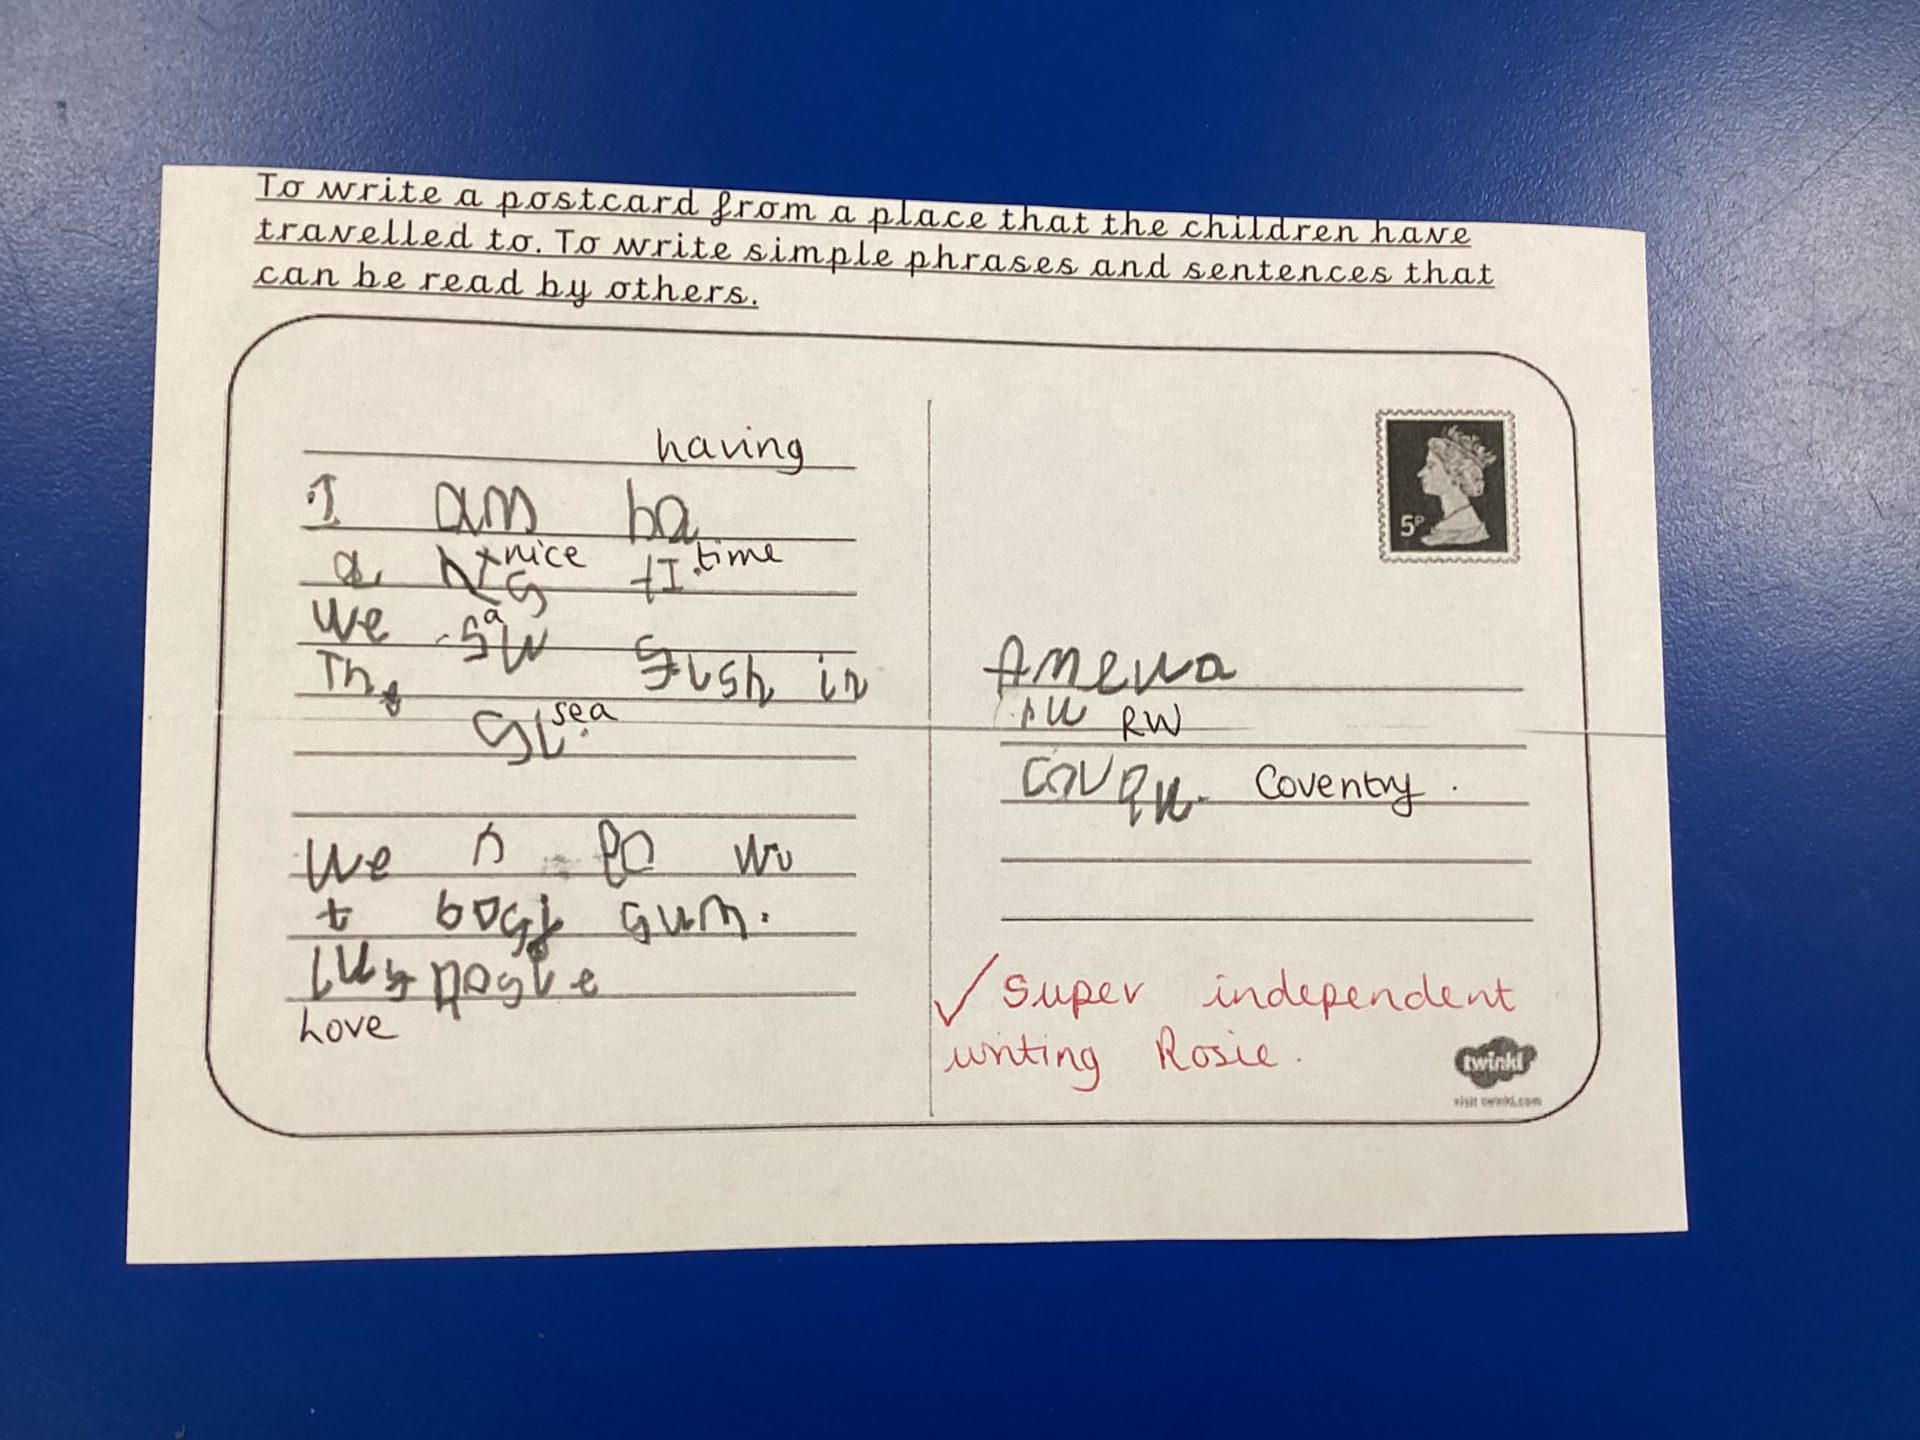 To write a postcard from a place that the children have
travelled to. To write simple phrases and sentences that
can be read by others.
having
I am ha
a nice tI time
We saw fish in
The
sea
We n go
t bogt sum.
Love
5P
Amelia
RW
Coventry.
✓ Super independent
writing Rosie.
twinkl
visit twinkl.com